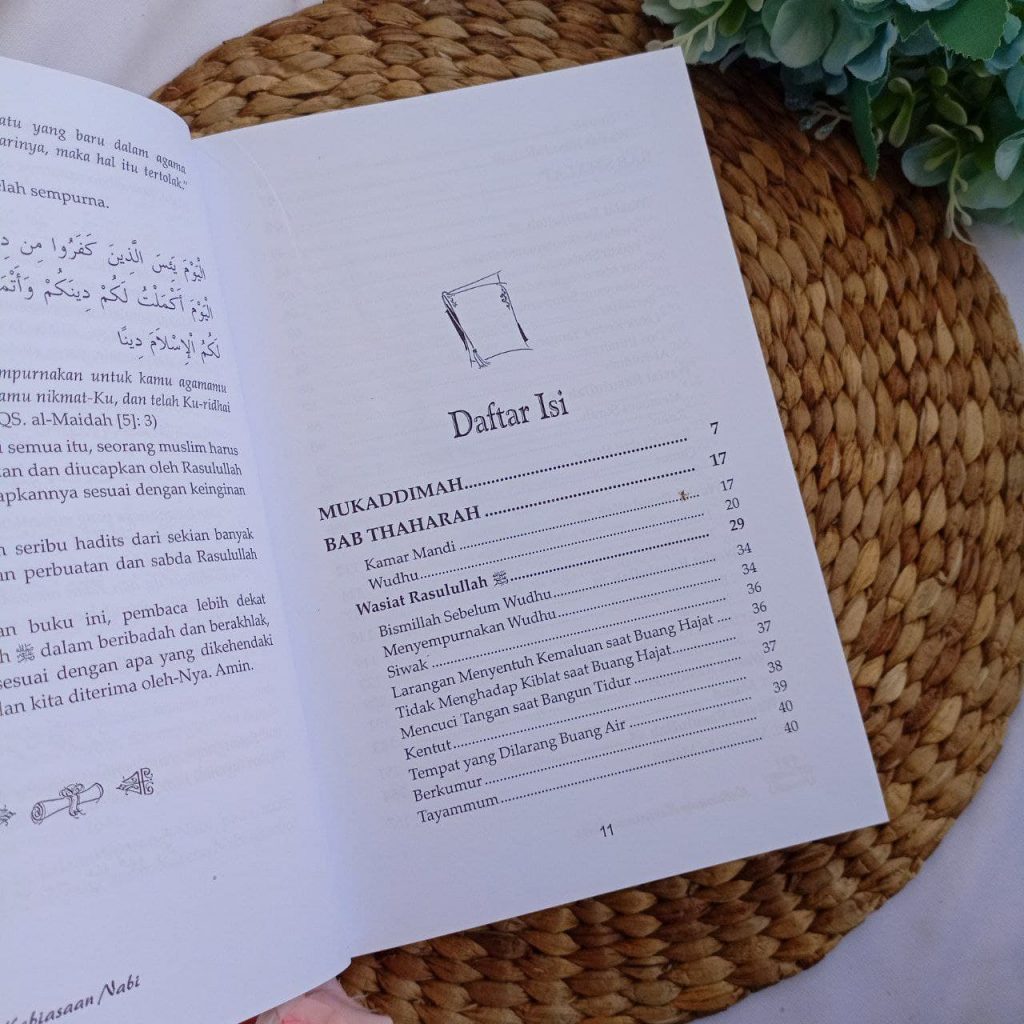 yang baru dalam agama
maka hal itu tertolak."
sempurna.
الْيَوْمَ يَئِسَ الَّذِينَ كَفَرُوا مِن
الْيَوْمَ أَكْمَلْتُ لَكُمْ دِينَكُمْ
لَكُمُ الْإِسْلَامَ دِينًا
untuk kamu agamamu
nikmat-Ku, dan telah Ku-ridhai
QS. al-Maidah [5]: 3)
semua itu, seorang muslim harus
dan diucapkan oleh Rasulullah
sesuai dengan keinginan
seribu hadits dari sekian banyak
perbuatan dan sabda Rasulullah
buku ini, pembaca lebih dekat
ﷺ dalam beribadah dan berakhlak,
sesuai dengan apa yang dikehendaki
kita diterima oleh-Nya. Amin.
Nabi
Daftar Isi
MUKADDIMAH.................... 7
BAB THAHARAH .................... 17
Kamar Mandi .................... 17
Wudhu.................... 20
Wasiat Rasulullah ﷺ.................... 29
Bismillah Sebelum Wudhu.................... 34
Menyempurnakan Wudhu.................... 34
Siwak.................... 36
Larangan Menyentuh Kemaluan saat Buang Hajat .... 36
Tidak Menghadap Kiblat saat Buang Hajat.................... 37
Mencuci Tangan saat Bangun Tidur .................... 37
Kentut.................... 38
Tempat yang Dilarang Buang Air .................... 39
Berkumur .................... 40
Tayammum.................... 40
11